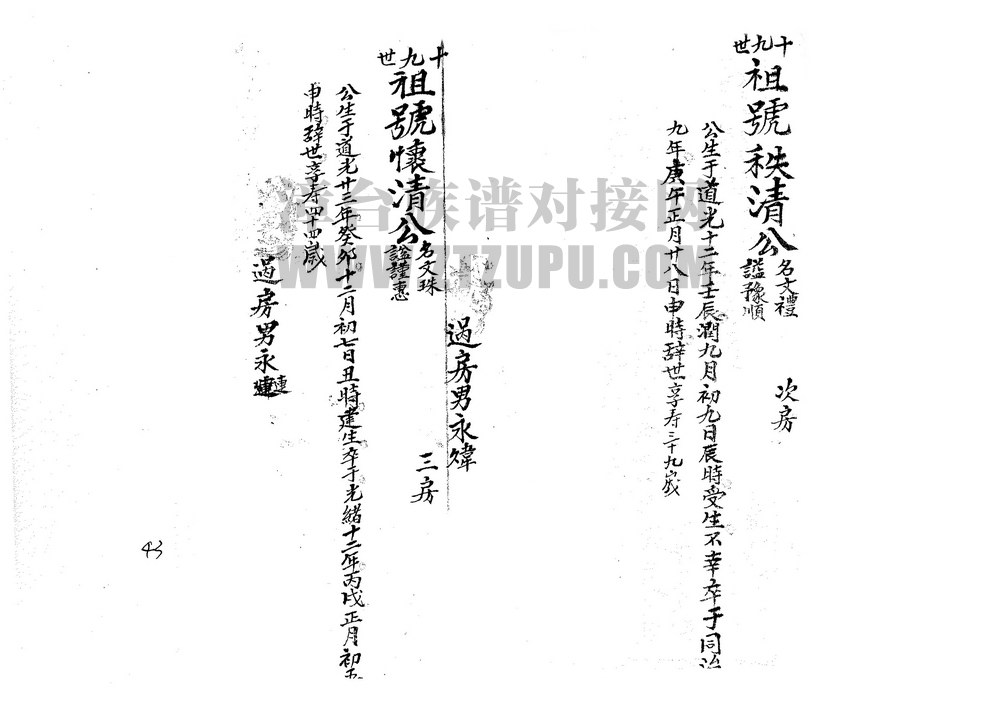 十九世
祖號秩清公
名文禮
謚豫順
次房
公生于道光十二年壬辰潤九月初九日辰時受生不幸卒于同治
九年庚午正月廿八日申時辞世享寿三十九歲
過房男永煒
十九世
祖號懷清公
名文珠
謚謹惠
三房
公生于道光廿三年癸卯十二月初七日丑時建生卒于光緒十二年丙戌正月初五
申時辞世享寿四十四歲
過房男永
漳台族谱对接网
WWW.ZTZUPU.COM
43